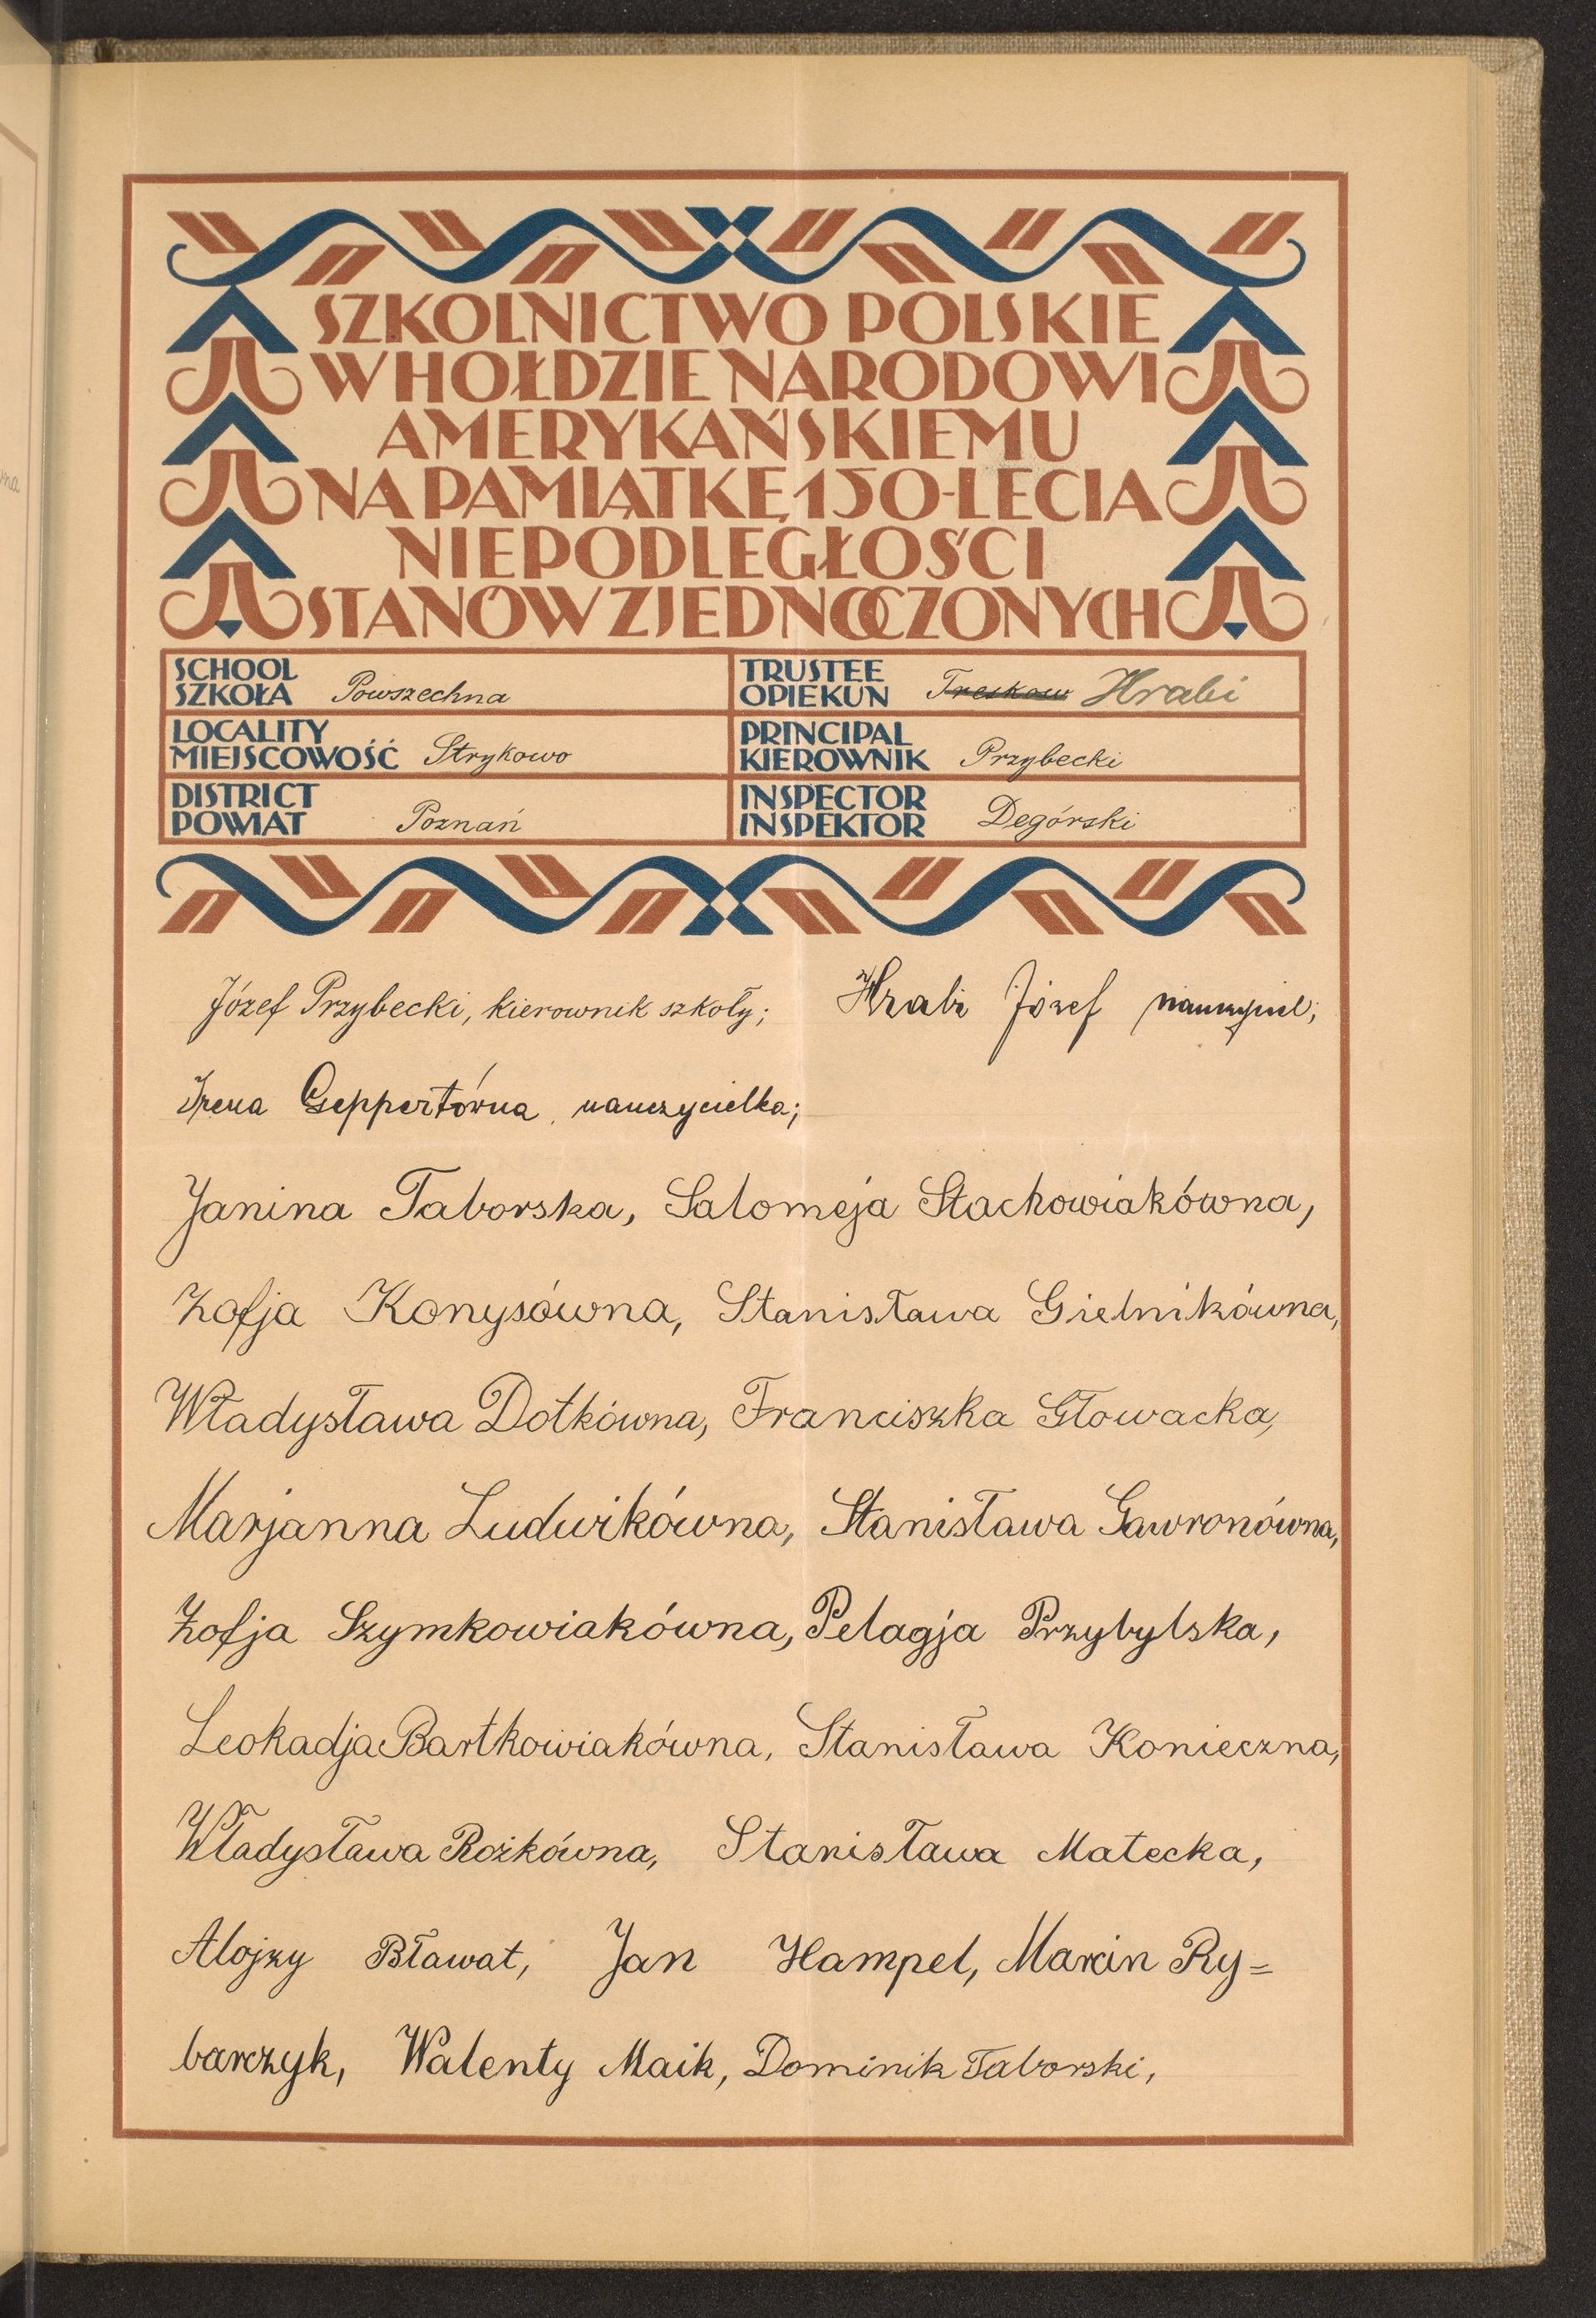 SZKOLNICTWO POLSKIE
W HOŁDZIE NARODOWI
AMERYKAŃSKIEMU
NA PAMIĄTKĘ 150-LECIA
NIEPODLEGŁOŚCI
STANÓW ZJEDNOCZONYCH
SCHOOL
SZKOŁA Powszechna
TRUSTEE
OPIEKUN Treskow Hrabi
LOCALITY
MIEJSCOWOŚĆ Strykowo
PRINCIPAL
KIEROWNIK Przybecki
DISTRICT
POWIAT Poznań
INSPECTOR
INSPEKTOR Degórski
Józef Przybecki, kierownik szkoły; Hrabi Józef nauczyciel;
Irena Geppertówna, nauczycielka;
Janina Taborska, Salomeja Stachowiakówna,
Zofja Konysówna, Stanisława Gielnikówna,
Władysława Dotkówna, Franciszka Głowacka,
Marjanna Ludwikówna, Stanisława Gawronówna,
Zofja Szymkowiakówna, Pelagja Przybylska,
Leokadja Bartkowiakówna, Stanisława Konieczna,
Władysława Rożkówna, Stanisława Matecka,
Alojzy Bławat, Jan Hampel, Marcin Ry=
barczyk, Walenty Maik, Dominik Taborski,